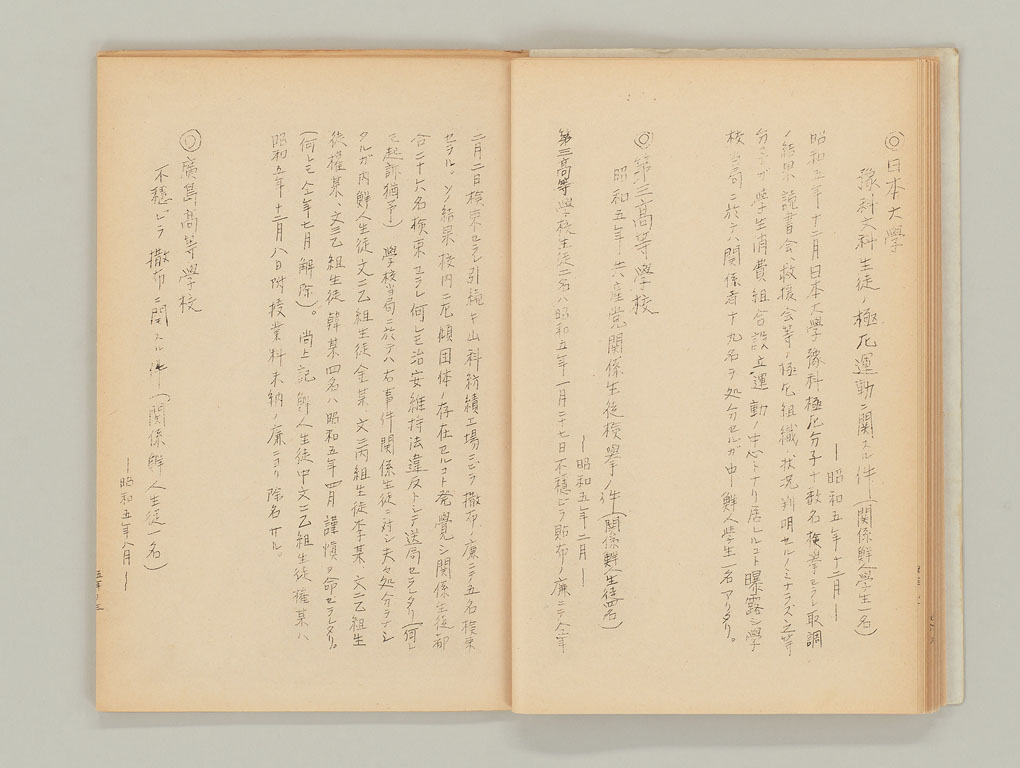 ◎日本大學
豫科文科生徒ノ極左運動ニ関スル件(関係鮮人學生一名)
―昭和五年十二月―
昭和五年十二月日本大學豫科極左分子十数名検擧セラレ取調
ノ結果読書会、救援会等ノ極左組織ノ状況判明セルノミナラズ之等
分子ガ學生消費組合設立運動ノ中心トナリ居レルコト曝露シ學
校当局ニ於テハ関係者十九名ヲ処分セルガ中鮮人學生一名アリタリ。
◎第三高等學校
昭和五年共産党関係生徒検擧ノ件(関係鮮人生徒四名)
―昭和五年二月―
第三高等學校生徒二名ハ昭和五年一月二十七日不穏ビラ貼布ノ廉ニテ仝年
二月二日検束セラレ引続キ山科紡績工場ニビラ撒布ノ廉ニテ五名検束
セラル。ソノ結果校内ニ左傾団体ノ存在セルコト発覺シ関係生徒都
合二十六名検束セラレ何レモ治安維持法違反トシテ送局セラレタリ(何レ
モ起訴猶予) 學校当局ニ於テハ右事件関係生徒ニ対シ夫々処分ヲナシ
タルガ内鮮人生徒文二乙組生徒金某、文二丙組生徒李某、文二乙組生
徒權某、文三乙組生徒韓某四名ハ昭和五年四月謹慎ヲ命セラレタリ。
(何レモ仝年七月解除)。 尚上記鮮人生徒中文二乙組生徒權某ハ
昭和五年十二月八日附授業料未納ノ廉ニヨリ除名サル。
廣島高等學校
不穏ビラ撒布ニ関スル件(関係鮮人生徒一名)
―昭和五年八月―